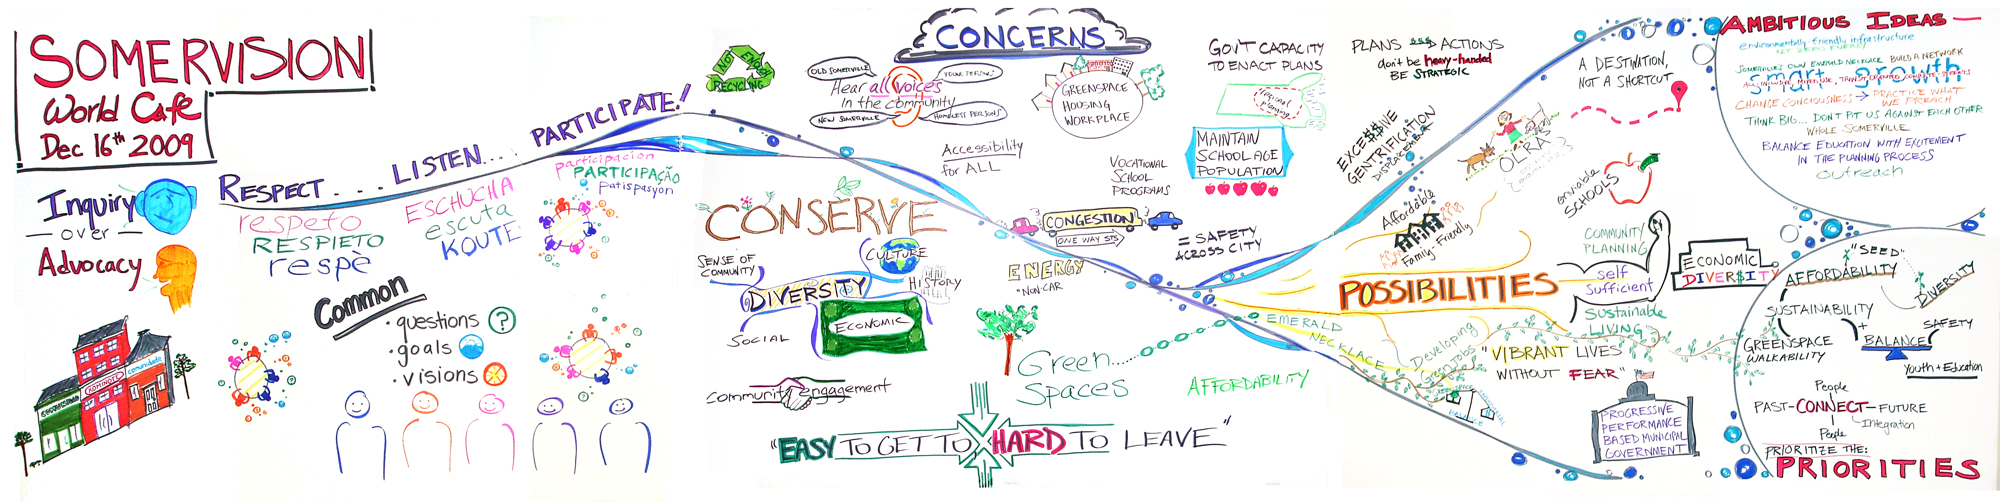 SOMERVISION!
World Cafe
Dec 16th 2009
Inquiry
over
Advocacy
RESPECT...
respeto
RESPIETO
respè
LISTEN....
ESCHUCHA
escuta
KOUTE
PARTICIPATE!
participacion
PARTICIPAÇÃO
patispasyon
Common
• questions ?
• goals
• visions
NOT ENOUGH
RECYCLING
CONCERNS
OLD SOMERVILLE
YOUNG PERSONS
Hear all voices
in the community
NEW SOMERVILLE
HOMELESS PERSONS
GREENSPACE
HOUSING
WORKPLACE
Accessibility
for ALL
VOCATIONAL
SCHOOL
PROGRAMS
GOV'T CAPACITY
TO ENACT PLANS
regional
planning
MAINTAIN
SCHOOL AGE
POPULATION
PLANS ACTIONS
don't be heavy-handed
BE STRATEGIC
EXCE$$IVE
GENTRIFICATION
DISPLACEMENT
CONSERVE
SENSE OF
COMMUNITY
CULTURE
HISTORY
DIVERSITY
ECONOMIC
SOCIAL
community engagement
CONGESTION
ONE WAY STS
= SAFETY
ACROSS CITY
ENERGY
• NON-CAR
Green....
Spaces
EMERALD
NECKLACE
AFFORDABILITY
"EASY TO GET TO HARD TO LEAVE"
A DESTINATION,
NOT A SHORTCUT
OLRA'S
enviable
SCHOOLS
Affordable
Family Friendly
POSSIBILITIES
COMMUNITY
PLANNING
self
Sufficient
Sustainable
LIVING
ECONOMIC
DIVER$ITY
Developing
Green Jobs
"VIBRANT LIVES
WITHOUT FEAR"
PROGRESSIVE
PERFORMANCE
BASED MUNICIPAL
GOVERNMENT
AMBITIOUS IDEAS
environmentally friendly infrastructure
NET ZERO ENERGY
SOMERVILLE'S OWN EMERALD NECKLACE BUILD A NETWORK
smart growth
CHANGE CONCIOUSNESS → PRACTICE WHAT
WE PREACH
THINK BIG... DON'T PIT US AGAINST EACH OTHER
WHOLE SOMERVILLE
BALANCE EDUCATION WITH EXCITEMENT
IN THE PLANNING PROCESS
outreach
"SEED"
AFFORDABILITY
DIVERSITY
SUSTAINABILITY
+
SAFETY
BALANCE
GREENSPACE
WALKABILITY
Youth + Education
People
PAST-CONNECT-FUTURE
Integration
People
PRIORITIZE THE:
PRIORITIES